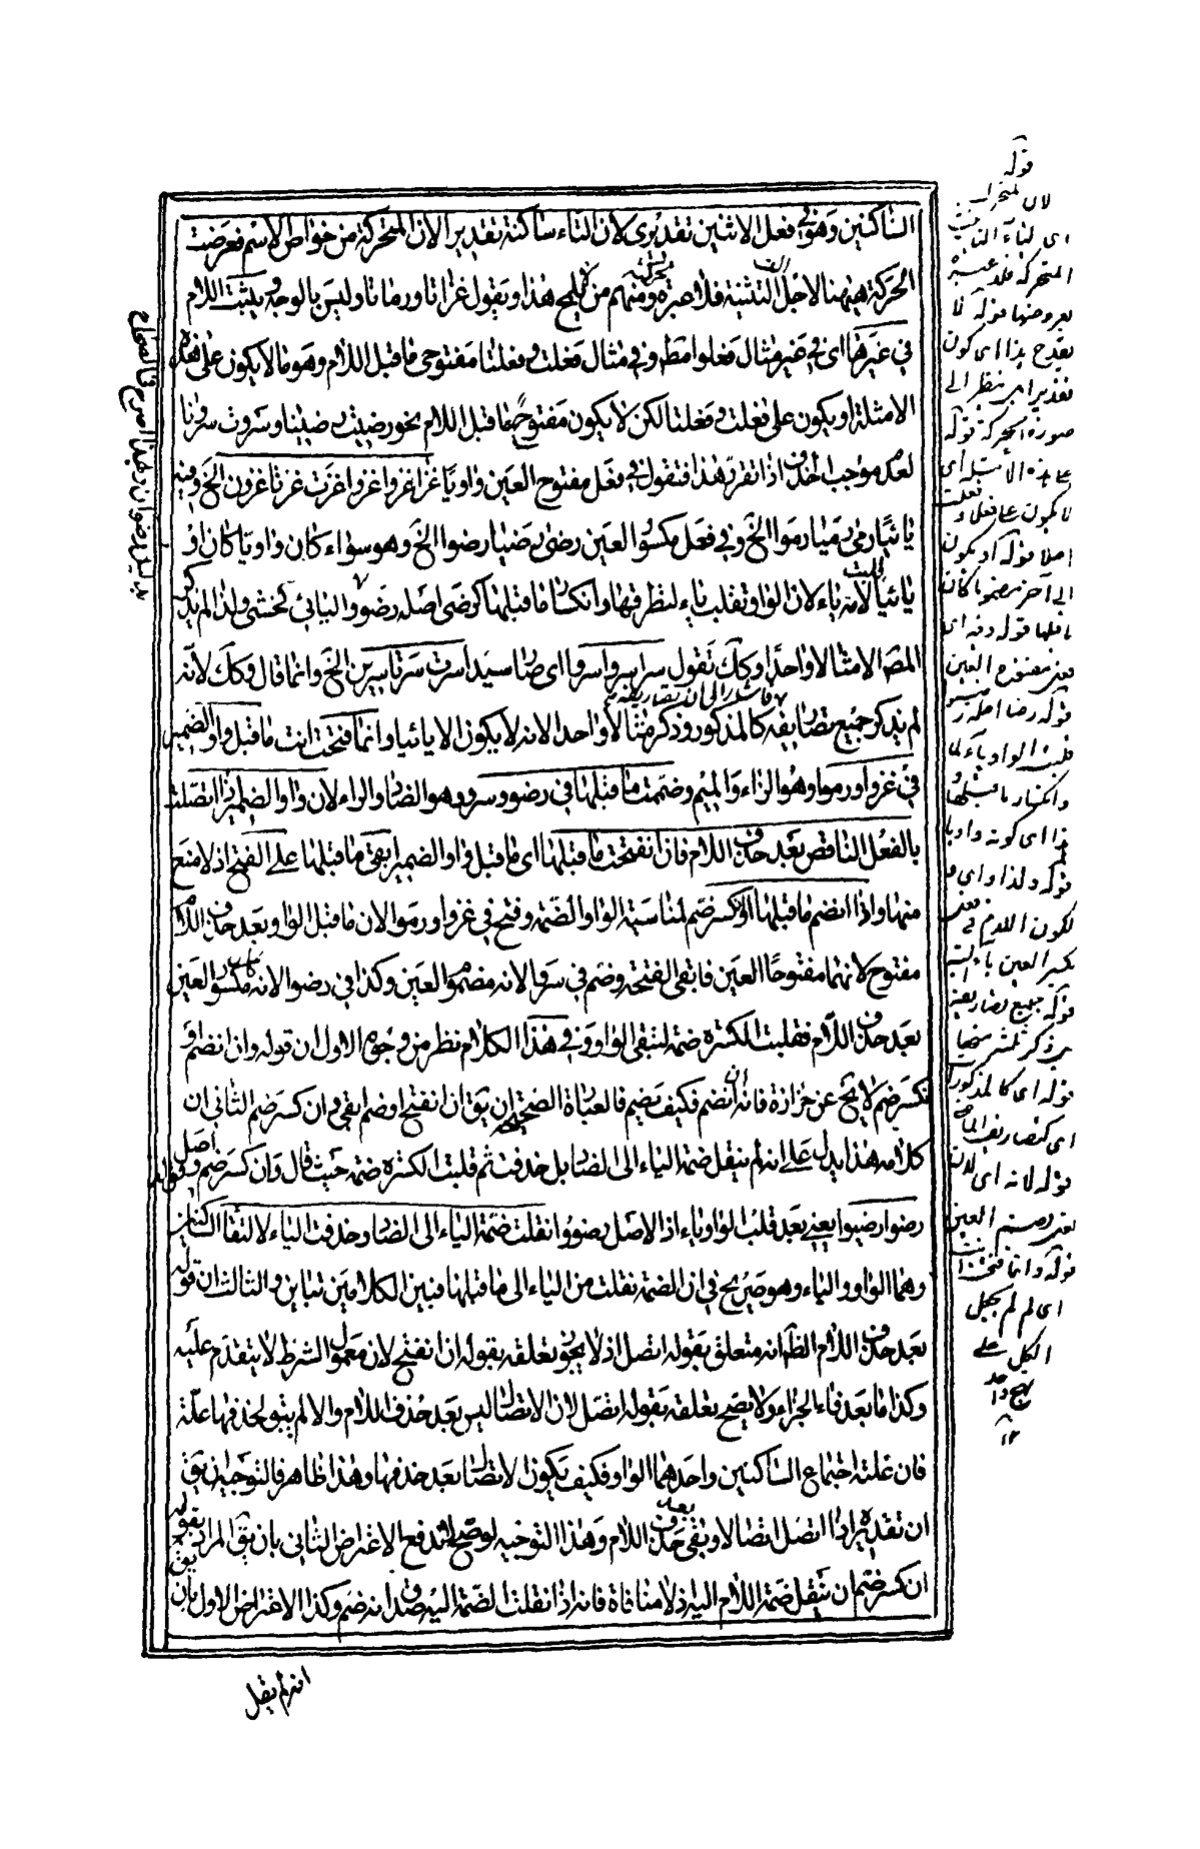 الساكنين وهو في فعل الاثنين تقديرى لان التاء ساكنة تقديرا لان المتحركة من خواص الاسم فعرضت
الحركة ههنا لاجل الف التثنية فلا عبرة بحركته ومنهم من لا يلمح هذا ويقول غزاتا ورماتا وليس بالوجه ويثبت اللام
في غيرها اى في غير مثال فعلوا مط وفي مثال فعلت وفعلتا مفتوحى ما قبل اللام وهو ما لا يكون على هذه
الامثلة او يكون على فعلت وفعلتا لكن لا يكون مفتوحا ما قبل اللام نحو رضيت رضيتا وسروت سروتا
لعدم موجب الحذف اذا تقرر هذا فتقول في فعل مفتوح العين واويا غزا غزوا غزوا غزت غزتا غزون الخ وفيه
يائيا رمى رميا رموا الخ وفي فعل مكسور العين رضى رضيا رضوا الخ وهو سواء كان واويا كان او
يائيا لامه ياء لان الواو تقلب ياء لتطرفها وانكسار ما قبلها كرضى اصله رضو واليائي كخشى ولذا لم يذكر
المص الا مثالا واحدا وكك تقول سرو سروا سروا اى صار سيدا سرت سرتا سرين الخ وانما قال وكك لانه
لم يذكر جميع تصاريفه كالمذكور وذكر مثالا واحدا لانه لا يكون الا يائيا وانما فتحت انت ما قبل واو الضمير
في غزوا ورموا وهو الزاء والميم وضممت ما قبلها في رضوا وسروا وهو الضاد والراء لان واو الضمير اذا اتصلت
بالفعل الناقص بعد حذف اللام فان انفتحت ما قبلها اى ما قبل واو الضمير بقى ما قبلها على الفتح اذ لا منع
منها واذا انضم ما قبلها او كسر ضم لمناسبة الواو الضمة وفتح في غزوا ورموا لان ما قبل الواو بعد حذف اللام
مفتوح لانهما مفتوحا العين فابقى الفتحة وضم في سروا لانه مضموم العين وكذا في رضوا لانه كان مكسور العين
بعد حذف اللام فقلبت الكسرة ضمة لتبقى الواو وفي هذا الكلام نظر من وجوه الاول ان قوله وان انضم او
انكسر ضم لا يخ عن حزازة فانه ان انضم فكيف يضم فالعبارة الصحيحة ان يق ان انفتح او ضم ابقى وان كسر ضم الثانى ان
كلامه هذا يدل على انه لم ينقل ضمة الياء الى الضاد بل حذفت ثم قلبت الكسرة ضمة حيث قال وان كسر ضم وقوله واصل
رضوا رضيوا يعنى بعد قلب الواو ياء اذ الاصل رضووا نقلت ضمة الياء الى الضاد وحذفت الياء لالتقاء الساكنين
وهما الواو والياء وهو صريح في ان الضمة نقلت من الياء الى ما قبلها فبين الكلامين تباين والثالث ان قوله
بعد حذف اللام الظ انه متعلق بقوله اتصل اذ لا يجوز تعلقه بقوله ان انفتح لان معمول الشرط لا يتقدم عليه
وكذا ما بعد فاء الجزاء ولا يصح تعلقه بقوله اتصل لان الاتصال ليس بعد حذف اللام والا لم يبق لحذفها علة
فان علته اجتماع الساكنين واحدهما الواو فكيف يكون الاتصال بعد حذفها وهذا ظاهر فالتوجيه ان يق
ان تقديره اذا اتصل اتصالا وبقى بعد حذف اللام وهذا التوجيه لو صح اندفع الاعتراض الثانى بان يق المراد بقوله
ان كسر ضم ان ينقل ضمة اللام اليه اذ لا منافاة فانه اذا نقلت الضمة اليه صدق انه ضم وكذا الاعتراض الاول بان يق
انه لم يقل
قوله
لان المتحركة
اى التاء
المتحركة فلا عبرة
بعروضها قوله لا
يقدح بهذا اى كون
تقديرا من ينظر الى
صورة الحركة قوله
على هذه الامثلة اى
لا يكون على فعلت و
اصلا قوله او يكون
الى آخره مضموما كان
قوله رضا اصله رضو
قلبت الواو ياء لما
وانكسار ما قبلها
قوله ولذا
لكون اللام في
بكسر العين ياء البتة
قوله جميع تصاريفه
قوله اى كالمذكور
اى كتصاريف الماضى
قوله لانه اى لان
بضم العين
قوله وانما فتحت
اى لم لم يجعل
الكل على
نهج واحد
١٢